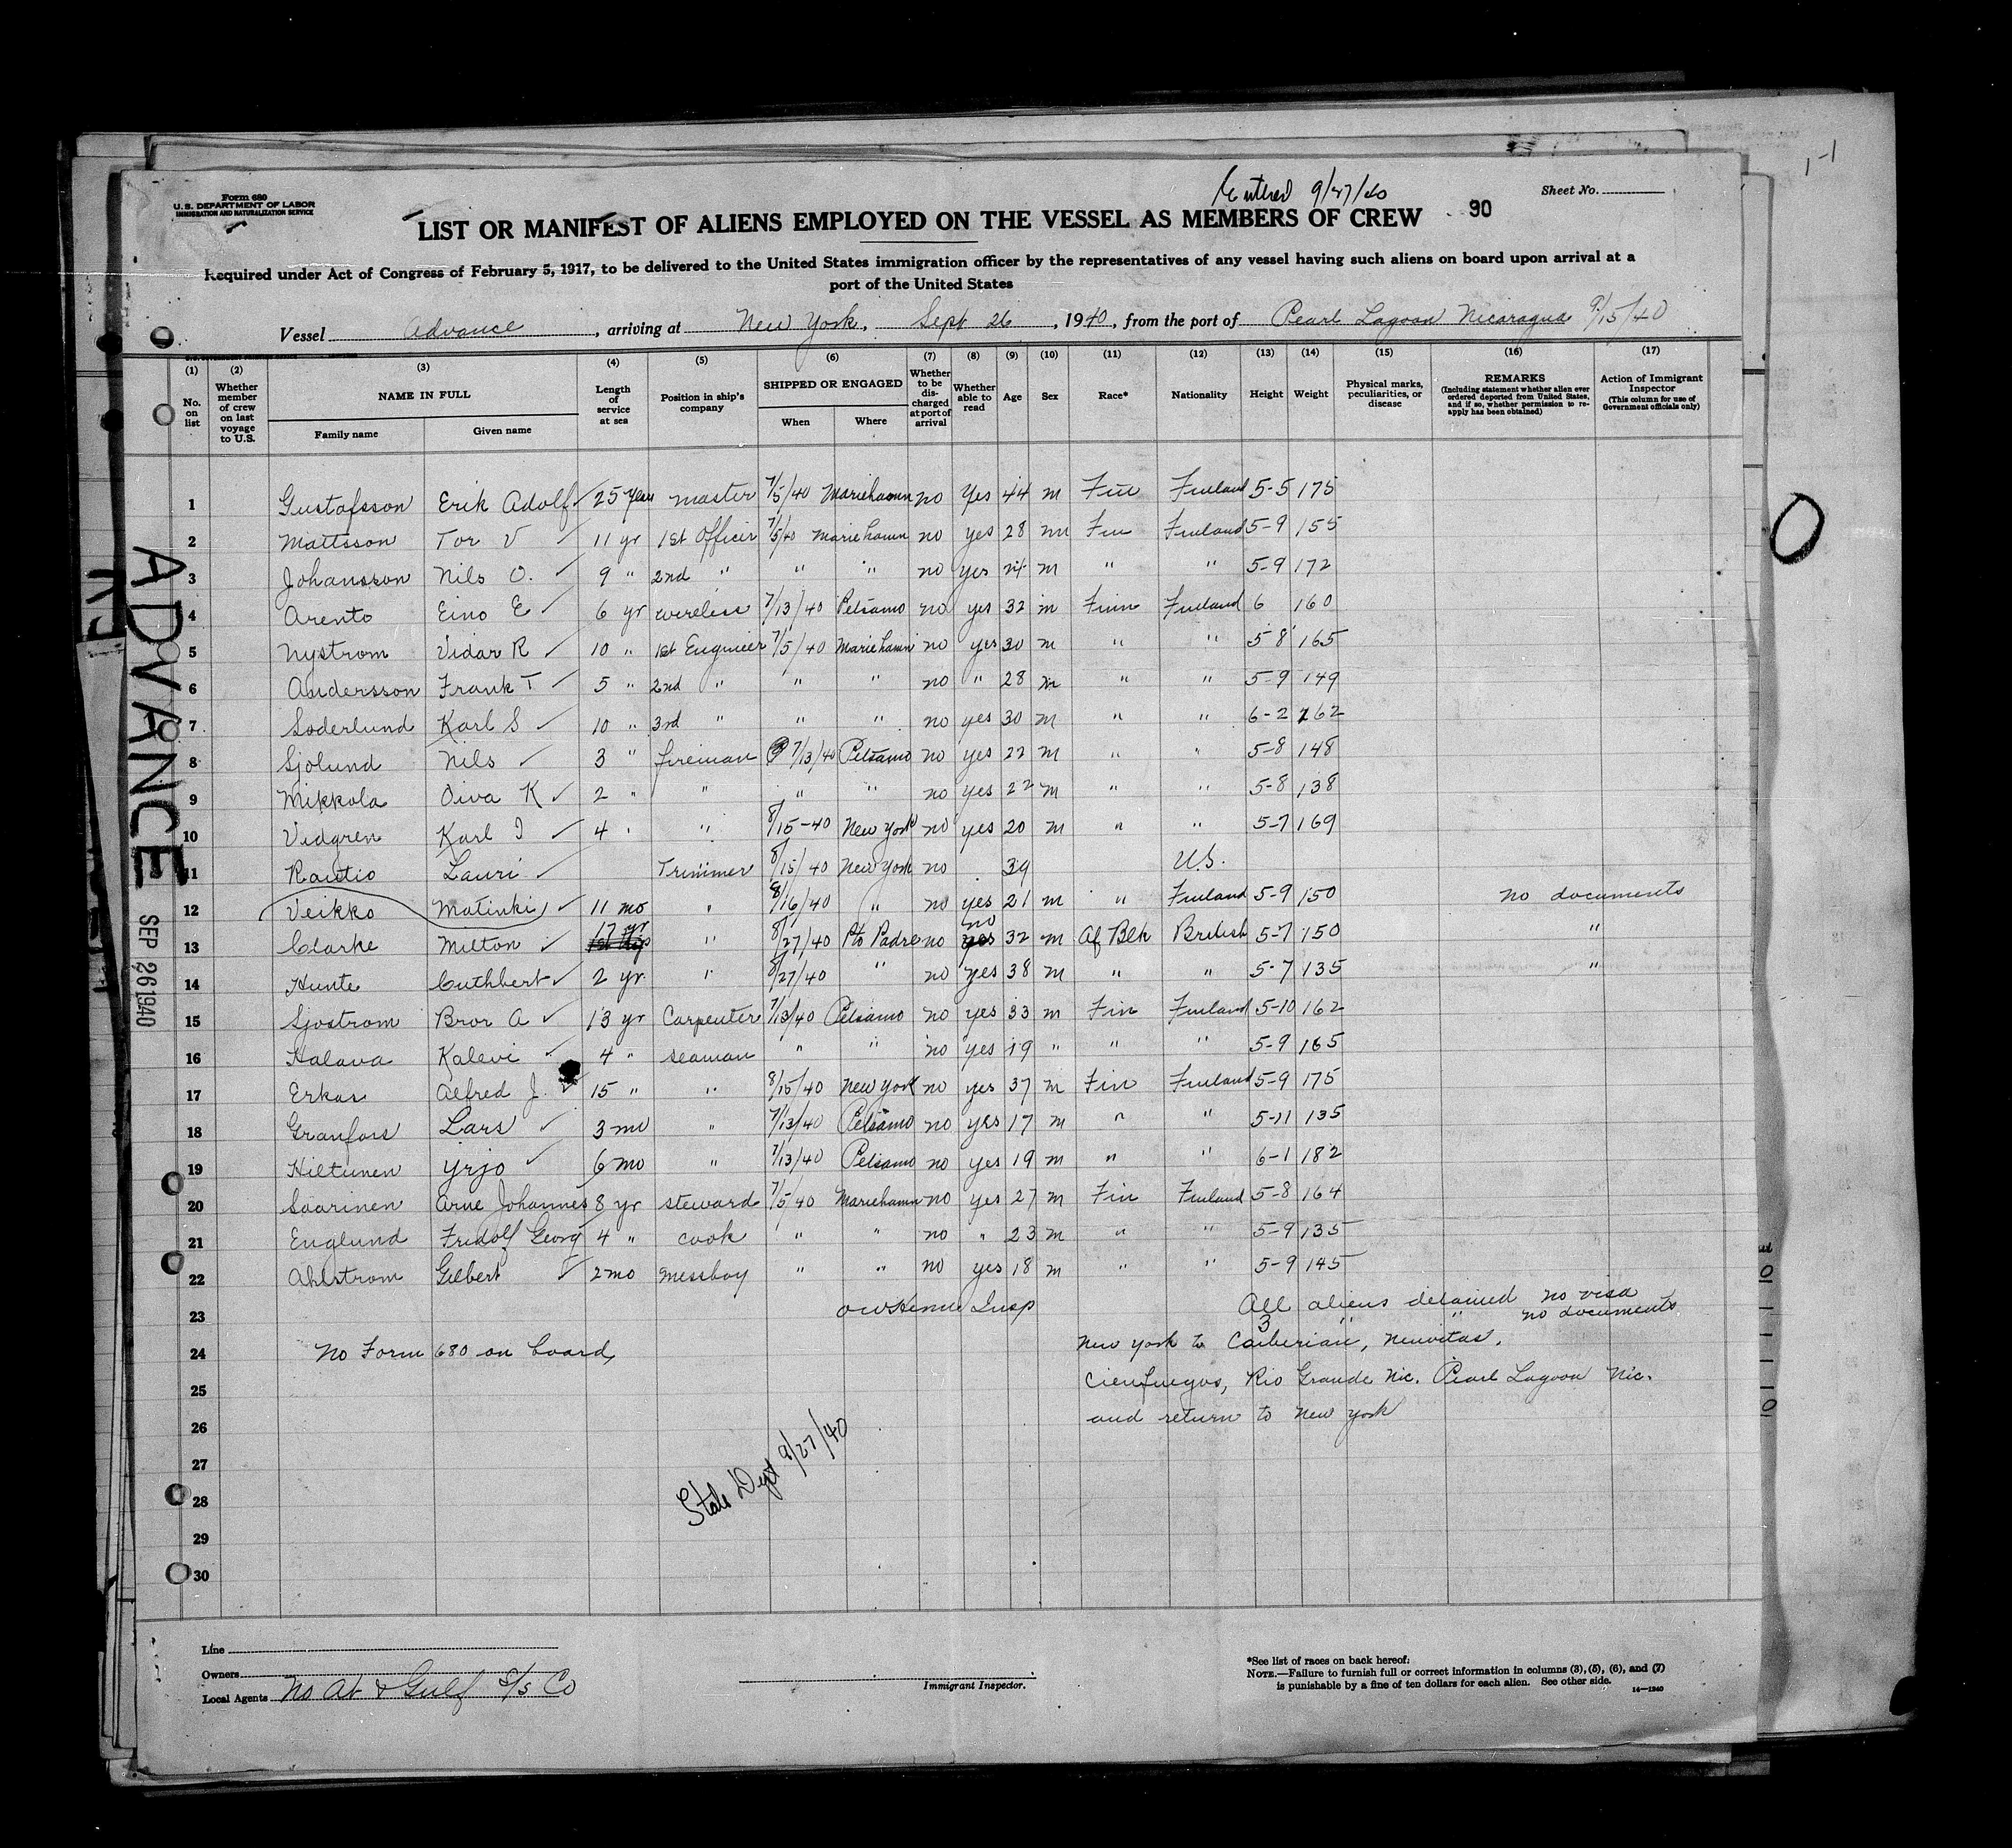 Entered 9/27/40
Form 680
U. S. DEPARTMENT OF LABOR
IMMIGRATION AND NATURALIZATION SERVICE
Sheet No.
90
LIST OR MANIFEST OF ALIENS EMPLOYED ON THE VESSEL AS MEMBERS OF CREW
Required under Act of Congress of February 5, 1917, to be delivered to the United States immigration officer by the representatives of any vessel having such aliens on board upon arrival at a
port of the United States
Vessel Advance, arriving at New York, Sept 26, 1940, from the port of Pearl Lagoon Nicaragua 9/15/40
(1) No. on list
(2) Whether member of crew on last voyage to U.S.
(3) NAME IN FULL Family name Given name
(4) Length of service at sea
(5) Position in ship's company
(6) SHIPPED OR ENGAGED When Where
(7) Whether to be discharged at port of arrival
(8) Whether able to read
(9) Age
(10) Sex
(11) Race*
(12) Nationality
(13) Height
(14) Weight
(15) Physical marks, peculiarities, or disease
(16) REMARKS (Including statement whether alien ever ordered deported from United States, and if so, whether permission to reapply has been obtained)
(17) Action of Immigrant Inspector (This column for use of Government officials only)
1 Gustafsson Erik Adolf 25 years master 7/5/40 Mariehamn no Yes 44 m Fin Finland 5-5 175
2 Mattsson Tor V 11 yr 1st Officer 7/5/40 Mariehamn no yes 28 m Fin Finland 5-9 155
3 Johansson Nils O. 9 " 2nd " " " no yes 24 m " " 5-9 172
4 Arento Eino E 6 yr wireless 7/13/40 Petsamo no yes 32 m Finn Finland 6 160
5 Nystrom Vidar R 10 " 1st Engineer 7/5/40 Mariehamn no yes 30 m " " 5-8 165
6 Andersson Frank T 5 " 2nd " " " no " 28 m " " 5-9 149
7 Soderlund Karl S 10 " 3rd " " " no yes 30 m " " 6-2 162
8 Sjolund Nils 3 " fireman 7/13/40 Petsamo no yes 22 m " " 5-8 148
9 Mikkola Oiva K 2 " " " " no yes 22 m " " 5-8 138
10 Vidgren Karl I 4 " " 8/15-40 New York no yes 20 m " " 5-7 169
11 Rautio Lauri Trimmer 8/15/40 New York no 39 U.S.
12 Veikko Matinki 11 mo " 8/16/40 " no yes 21 m " Finland 5-9 150 no documents
13 Clarke Milton 17 yr " 8/27/40 Pto Padre no no yes 32 m Af Blk British 5-7 150 "
14 Hunte Cuthbert 2 yr " 8/27/40 " no yes 38 m " " 5-7 135 "
15 Sjostrom Bror A 13 yr Carpenter 7/13/40 Petsamo no yes 33 m Fin Finland 5-10 162
16 Halava Kalevi 4 " seaman " " no yes 19 " " " 5-9 165
17 Erkas Alfred J. 15 " " 8/15/40 New York no yes 37 m Fin Finland 5-9 175
18 Granfors Lars 3 mo " 7/13/40 Petsamo no yes 17 m " " 5-11 135
19 Hiltunen Yrjo 6 mo " 7/13/40 Petsamo no yes 19 m " " 6-1 182
20 Saarinen Arne Johannes 8 yr steward 7/5/40 Mariehamn no yes 27 m Fin Finland 5-8 164
21 Englund Fridolf Georg 4 " cook " " no " 23 m " " 5-9 135
22 Ahlstrom Gilbert 2 mo messboy " " no yes 18 m " " 5-9 145
23 Insp All aliens detained no visa
3 " " no documents
24 No Form 680 on board, New York to Caiberian, Neuvitas,
25 Cienfuegos, Rio Grande Nic. Pearl Lagoon Nic.
26 and return to New York
27
28
29
30
State Dept 9/27/40
ADVANCE
SEP 26 1940
Line
Owners
Local Agents No At & Gulf S/S Co
Immigrant Inspector.
*See list of races on back hereof:
NOTE.—Failure to furnish full or correct information in columns (3), (5), (6), and (7)
is punishable by a fine of ten dollars for each alien. See other side.
14—1240